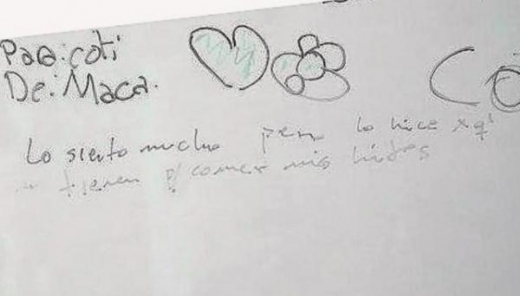 Paa: coti
De: Maca.
Co
Lo siento mucho pero lo hice xq'
tienen p/ comer mis hijos